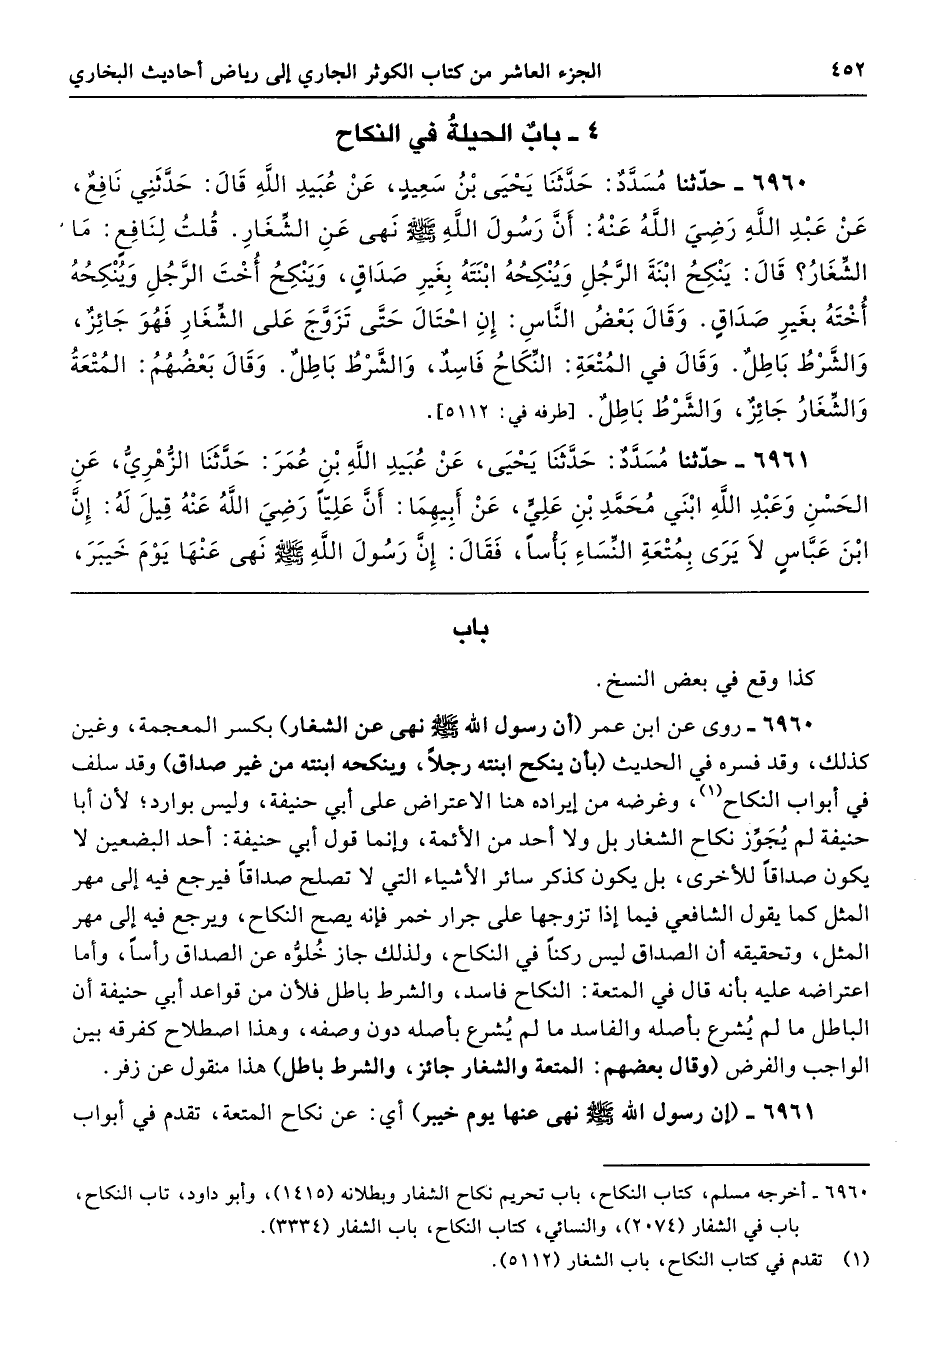 ٤٥٢ الجزء العاشر من كتاب الكوثر الجاري إلى رياض أحاديث البخاري
٤ ـ بابٌ الحيلةُ في النكاح
٦٩٦٠ ـ حدّثنا مُسَدَّدٌ: حَدَّثَنَا يَحْيَى بْنُ سَعِيدٍ، عَنْ عُبَيدِ اللَّهِ قَالَ: حَدَّثَنِي نَافِعٌ،
عَنْ عَبْدِ اللَّهِ رَضِيَ اللَّهُ عَنْهُ: أَنَّ رَسُولَ اللَّهِ ﷺ نَهى عَنِ الشِّغَارِ. قُلتُ لِنَافِعٍ: مَا
الشِّغَارُ؟ قَالَ: يَنْكِحُ ابْنَةَ الرَّجُلِ وَيُنْكِحُهُ ابْنَتَهُ بِغَيرِ صَدَاقٍ، وَيَنْكِحُ أُخْتَ الرَّجُلِ وَيُنْكِحُهُ
أُخْتَهُ بِغَيرِ صَدَاقٍ. وَقَالَ بَعْضُ النَّاسِ: إِنِ احْتَالَ حَتَّى تَزَوَّجَ عَلى الشِّغَارِ فَهُوَ جَائِزٌ،
وَالشَّرْطُ بَاطِلٌ. وَقَالَ في المُتْعَةِ: النِّكَاحُ فَاسِدٌ، وَالشَّرْطُ بَاطِلٌ. وَقَالَ بَعْضُهُمْ: المُتْعَةُ
وَالشِّغَارُ جَائِزٌ، وَالشَّرْطُ بَاطِلٌ. [طرفه في: ٥١١٢].
٦٩٦١ ـ حدّثنا مُسَدَّدٌ: حَدَّثَنَا يَحْيَى، عَنْ عُبَيدِ اللَّهِ بْنِ عُمَرَ: حَدَّثَنَا الزُّهْرِيُّ، عَنِ
الحَسْنِ وَعَبْدِ اللَّهِ ابْنَي مُحَمَّدِ بْنِ عَلِيٍّ، عَنْ أَبِيهِمَا: أَنَّ عَلِيّاً رَضِيَ اللَّهُ عَنْهُ قِيلَ لَهُ: إِنَّ
ابْنَ عَبَّاسٍ لاَ يَرَى بِمُتْعَةِ النِّسَاءِ بَأْساً، فَقَالَ: إِنَّ رَسُولَ اللَّهِ ﷺ نَهى عَنْهَا يَوْمَ خَيبَرَ،
باب
كذا وقع في بعض النسخ.
٦٩٦٠ ـ روى عن ابن عمر (أن رسول الله ﷺ نهى عن الشغار) بكسر المعجمة، وغين
كذلك، وقد فسره في الحديث (بأن ينكح ابنته رجلاً، وينكحه ابنته من غير صداق) وقد سلف
في أبواب النكاح(١)، وغرضه من إيراده هنا الاعتراض على أبي حنيفة، وليس بوارد؛ لأن أبا
حنيفة لم يُجَوِّز نكاح الشغار بل ولا أحد من الأئمة، وإنما قول أبي حنيفة: أحد البضعين لا
يكون صداقاً للأخرى، بل يكون كذكر سائر الأشياء التي لا تصلح صداقاً فيرجع فيه إلى مهر
المثل كما يقول الشافعي فيما إذا تزوجها على جرار خمر فإنه يصح النكاح، ويرجع فيه إلى مهر
المثل، وتحقيقه أن الصداق ليس ركناً في النكاح، ولذلك جاز خُلوُّه عن الصداق رأساً، وأما
اعتراضه عليه بأنه قال في المتعة: النكاح فاسد، والشرط باطل فلأن من قواعد أبي حنيفة أن
الباطل ما لم يُشرع بأصله والفاسد ما لم يُشرع بأصله دون وصفه، وهذا اصطلاح كفرقه بين
الواجب والفرض (وقال بعضهم: المتعة والشغار جائز، والشرط باطل) هذا منقول عن زفر.
٦٩٦١ ـ (إن رسول الله ﷺ نهى عنها يوم خيبر) أي: عن نكاح المتعة، تقدم في أبواب
٦٩٦٠ ـ أخرجه مسلم، كتاب النكاح، باب تحريم نكاح الشغار وبطلانه (١٤١٥)، وأبو داود، تاب النكاح،
باب في الشغار (٢٠٧٤)، والنسائي، كتاب النكاح، باب الشغار (٣٣٣٤).
(١) تقدم في كتاب النكاح، باب الشغار (٥١١٢).